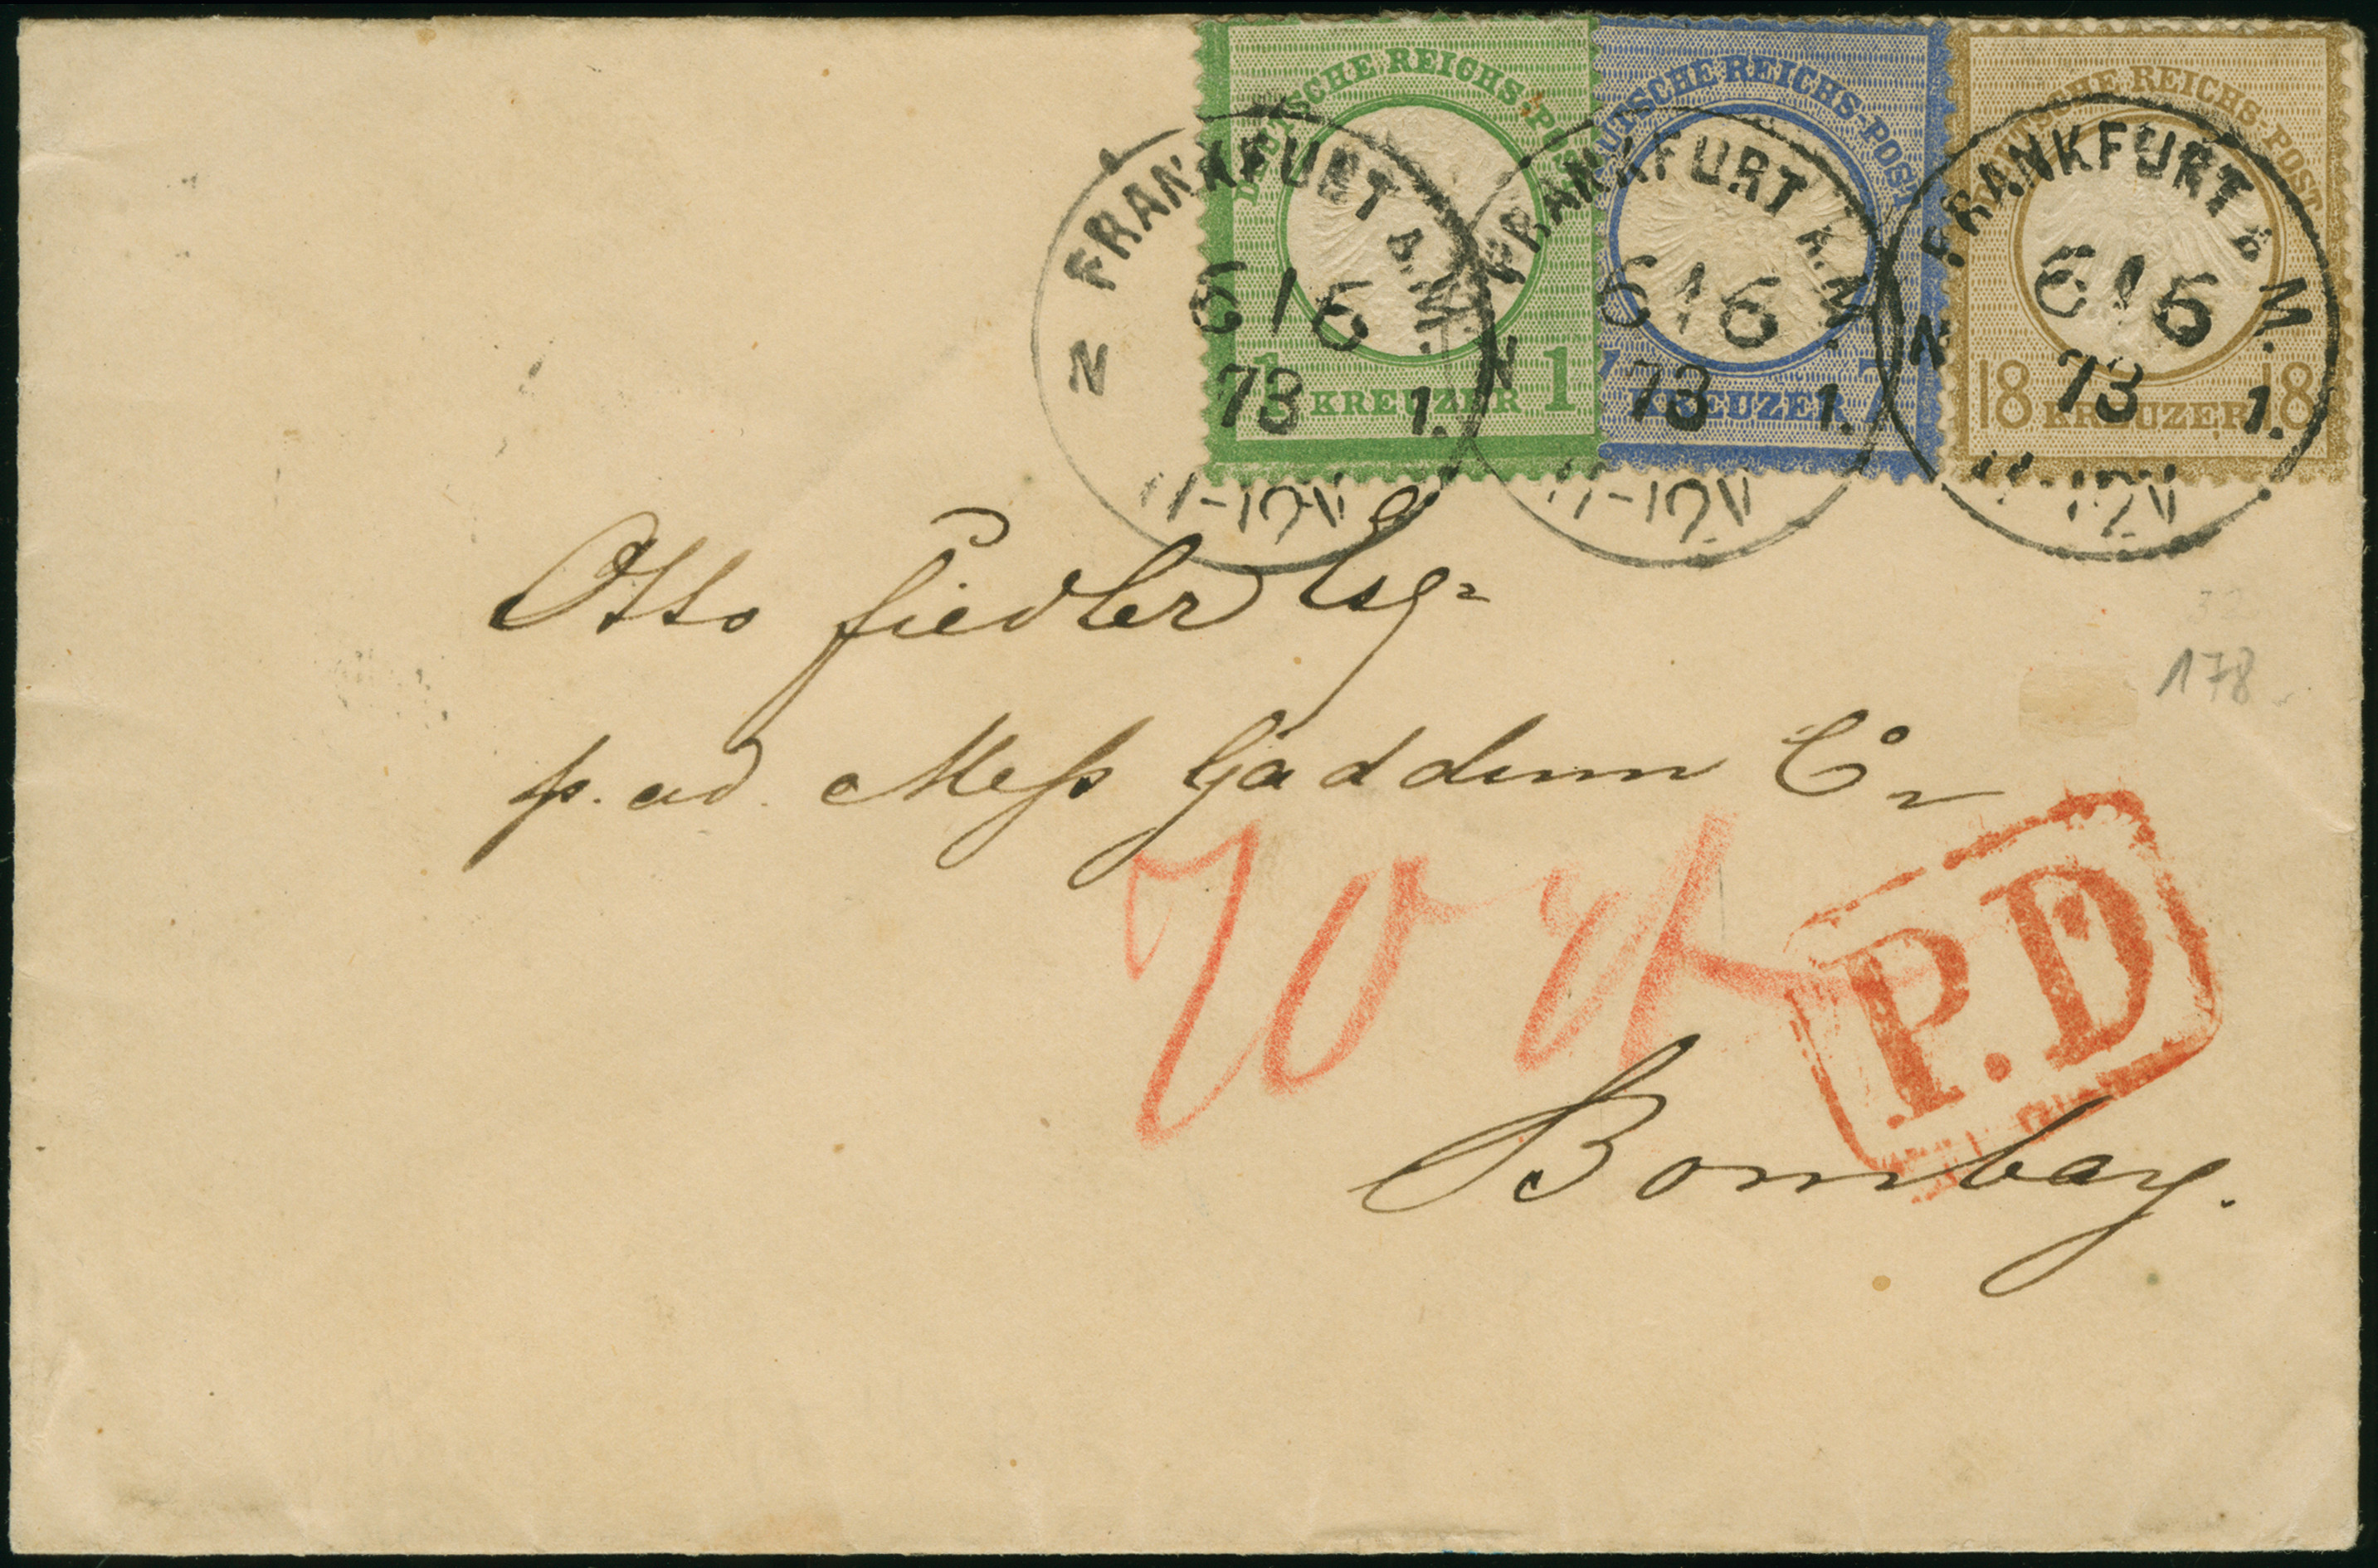 DEUTSCHE REICHS-POST
1 KREUZER 1
DEUTSCHE REICHS-POST
7 KREUZER 7
DEUTSCHE REICHS-POST
18 KREUZER 18
FRANKFURT A.M.
N
6 / 6
73 1.
11-12 N
FRANKFURT A.M.
N
6 / 6
73 1.
11-12 N
FRANKFURT A.M.
N
6 / 6
73 1.
11-12 N
Otto Fiedler Esq
178
p. ad. Mess Gaddum Co
P.D
Bombay.